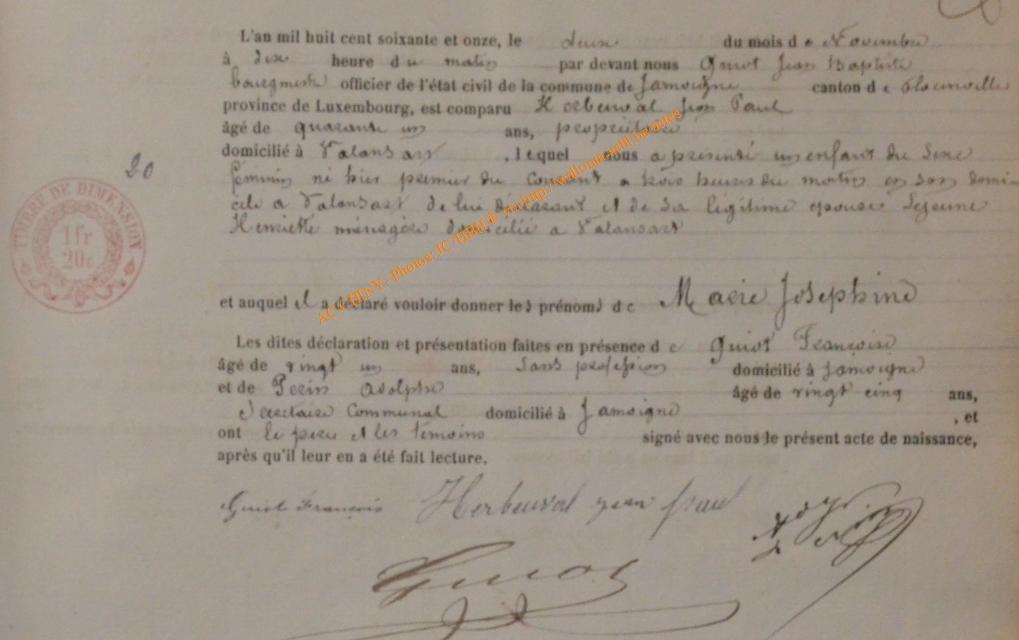 L'an mil huit cent soixante et onze, le deux du mois d e Novembre
à dix heure d u matin par devant nous Guiot Jean Baptiste
bourgmestre officier de l'état civil de la commune de Jamoigne canton d e
province de Luxembourg, est comparu Herbeuval Jean Paul
âgé de quarante un ans, propriétaire
domicilié à Valansart , lequel nous a présenté un enfant du sexe
féminin né hier premier du courant a trois heures du matin en son domi
cile a Valansart de lui déclarant et de sa légitime épouse Lejeune
Henriette ménagère domicilié a Valansart
20
TIMBRE DE DIMENSION
1 fr
20c
et auquel il a déclaré vouloir donner les prénoms de Marie Josephine
Les dites déclaration et présentation faites en présence d e Guiot François
âgé de vingt un ans, sans profession domicilié à Jamoigne
et de Perin Adolphe âgé de vingt cinq ans,
Secrétaire Communal domicilié à Jamoigne , et
ont le père et les témoins signé avec nous le présent acte de naissance,
après qu'il leur en a été fait lecture.
Guiot François Herbeuval jean paul
Guiot